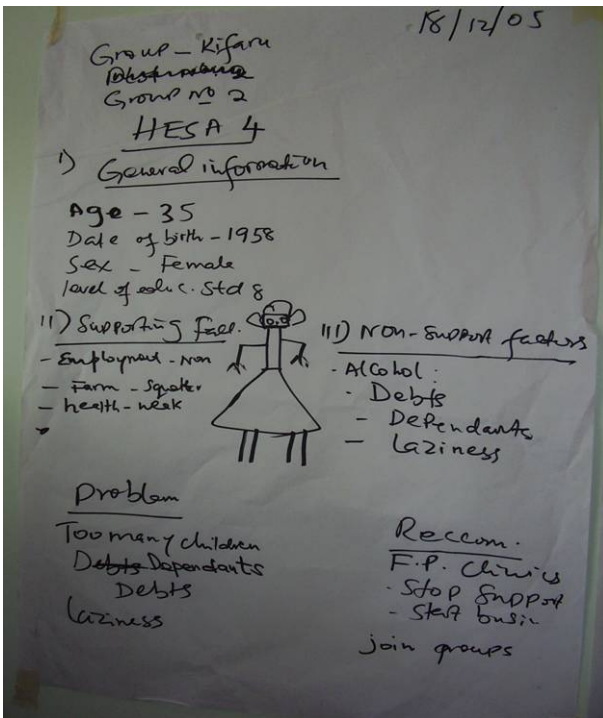 18/12/05
Group - Kifaru
Group No 2
HESA 4
1) General information
Age - 35
Date of birth - 1958
Sex - Female
level of educ. Std 8
11) Supporting Fac.
- Employment - Non
- Farm - Squatter
- health - weak
111) Non-Support factors
- Alcohol:
- Debts
- Dependants
- Laziness
Problem
Too many children
Debts Dependants
Debts
Laziness
Reccom.
F.P. Clinics
- Stop Support
- Start busi
join groups